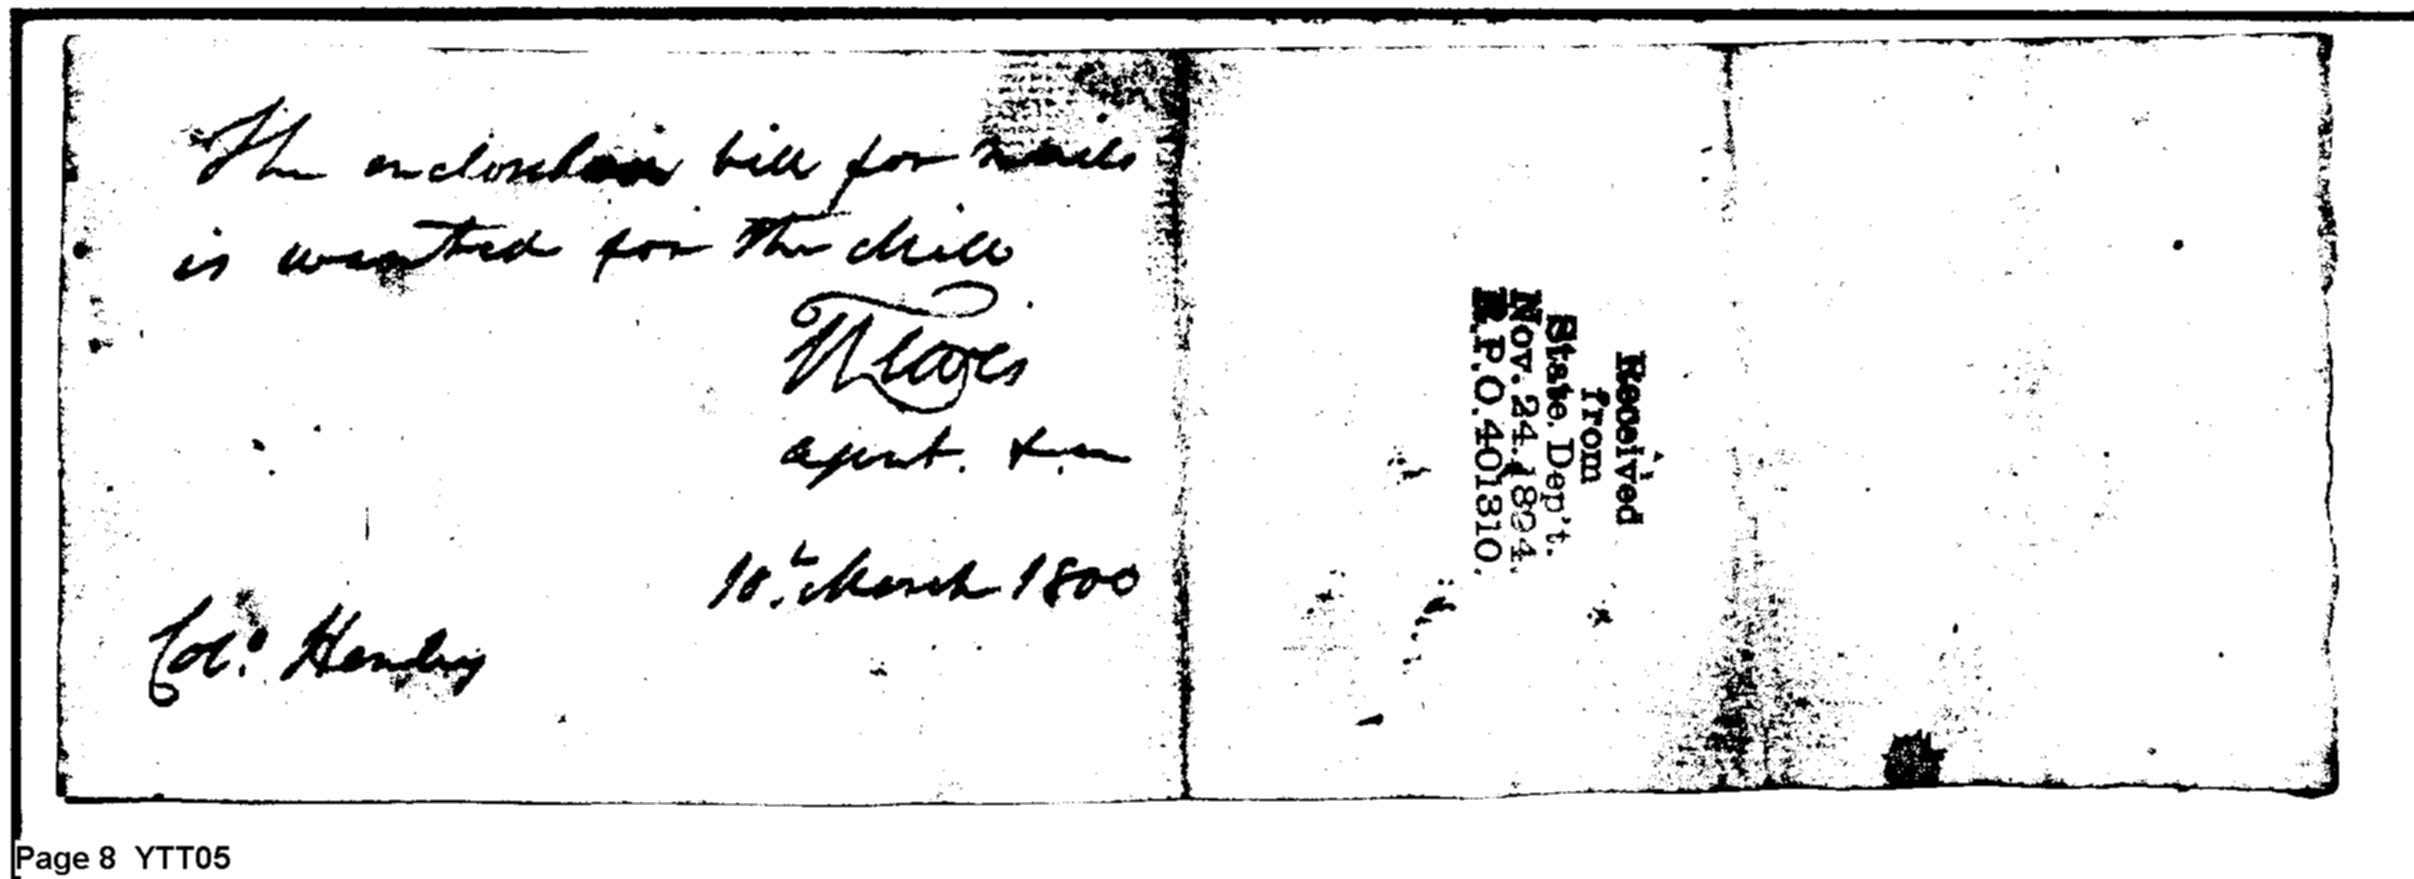 The enclosed bill for nails
is wanted for the Mill
10.t March 1800
Col.o Hendry
agent.
Received
from
State. Dep't.
Nov. 24. 1894.
R.P.O. 401310.
Page 8 YTT05